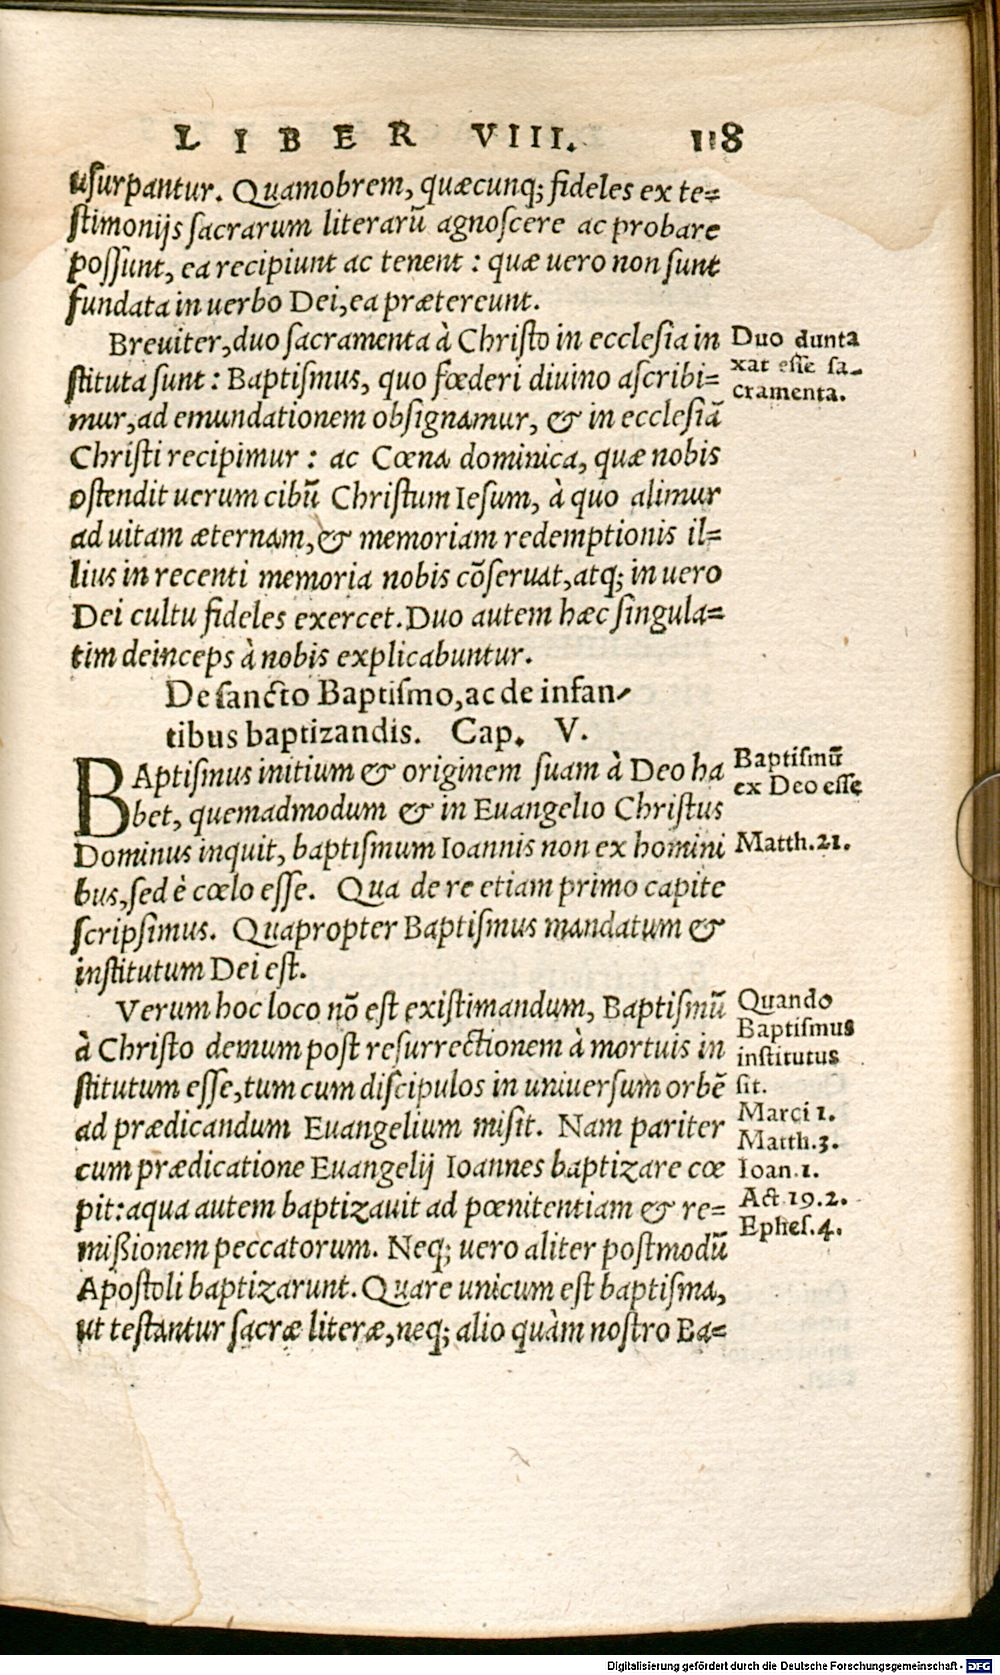 LIBER VIII. 118
usurpantur. Quamobrem, quæcunq; fideles ex te-
stimonijs sacrarum literarũ agnoscere ac probare
possunt, ea recipiunt ac tenent: quæ uero non sunt
fundata in uerbo Dei, ea prætereunt.
Breuiter, duo sacramenta à Christo in ecclesia in
stituta sunt: Baptismus, quo fœderi diuino ascribi-
mur, ad emundationem obsignamur, & in ecclesiã
Christi recipimur: ac Cœna dominica, quæ nobis
ostendit uerum cibũ Christum Iesum, à quo alimur
ad uitam æternam, & memoriam redemptionis il-
lius in recenti memoria nobis cõseruat, atq; in uero
Dei cultu fideles exercet. Duo autem hæc singula-
tim deinceps à nobis explicabuntur.
Duo dunta
xat esse sa-
cramenta.
De sancto Baptismo, ac de infan-
tibus baptizandis. Cap. V.
BAptismus initium & originem suam à Deo ha
bet, quemadmodum & in Euangelio Christus
Dominus inquit, baptismum Ioannis non ex homini
bus, sed è cœlo esse. Qua de re etiam primo capite
scripsimus. Quapropter Baptismus mandatum &
institutum Dei est.
Baptismũ
ex Deo esse
Matth.21.
Verum hoc loco nõ est existimandum, Baptismũ
à Christo demum post resurrectionem à mortuis in
stitutum esse, tum cum discipulos in uniuersum orbẽ
ad prædicandum Euangelium misit. Nam pariter
cum prædicatione Euangelij Ioannes baptizare cœ
pit: aqua autem baptizauit ad pœnitentiam & re-
mißionem peccatorum. Neq; uero aliter postmodũ
Apostoli baptizarunt. Quare unicum est baptisma,
ut testantur sacræ literæ, neq; alio quàm nostro Ba-
Quando
Baptismus
institutus
sit.
Marci 1.
Matth.3.
Ioan.1.
Act.19.2.
Ephes.4.
Digitalisierung gefördert durch die Deutsche Forschungsgemeinschaft - DFG